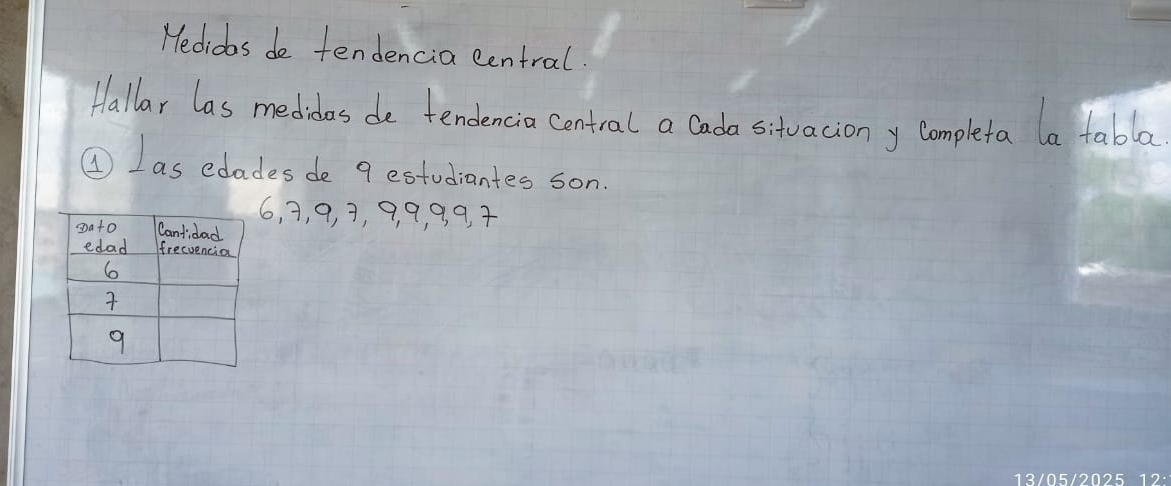 Medidas de tendencia central.
Hallar las medidas de tendencia Central a Cada situacion y Completa la tabla.
① Las edades de 9 estudiantes son.
6, 7, 9, 7, 9, 9, 9, 9, 7
Dato edad
Cantidad frecuencia
6
7
9
13/05/2025 12: